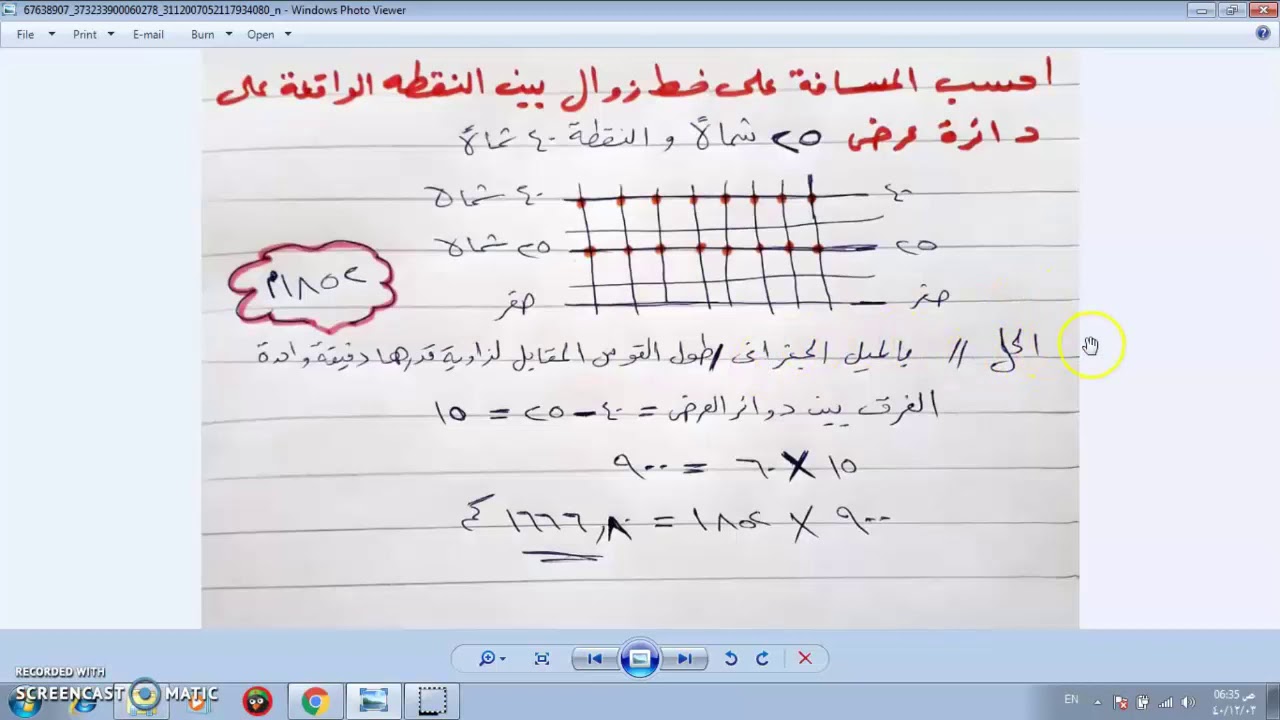 67638907_373233900060278_3112007052117934080_n - Windows Photo Viewer
File Print E-mail Burn Open
احسب المسافة على خط زوال بين النقطه الواقعة على
دائرة عرض ٢٥ شمالاً و النقطة ٤٠ شمالاً
٤٠ شمالا ٤٠
٢٥ شمالا ٢٥
صفر صفر
١٨٥٢م
الحل // بالميل الجغرافى / طول القوس المقابل لزاوية قدرها دقيقة واحدة
الفرق بين دوائر العرض = ٤٠ – ٢٥ = ١٥
١٥ × ٦٠ = ٩٠٠
٩٠٠ × ١٨٥٢ = ١٦٦٦,٨
RECORDED WITH
SCREENCAST MATIC
EN
06:35 ص
٤٠/١٢/٠٣